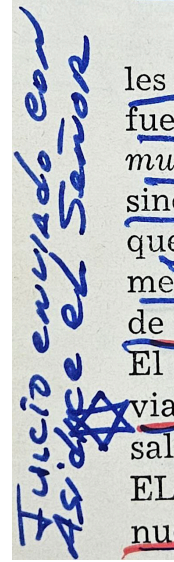 Inicio enviado con
Asi dice el Señor
les
fue
mu
sin
que
me
de
El
via
sal
EL
nu